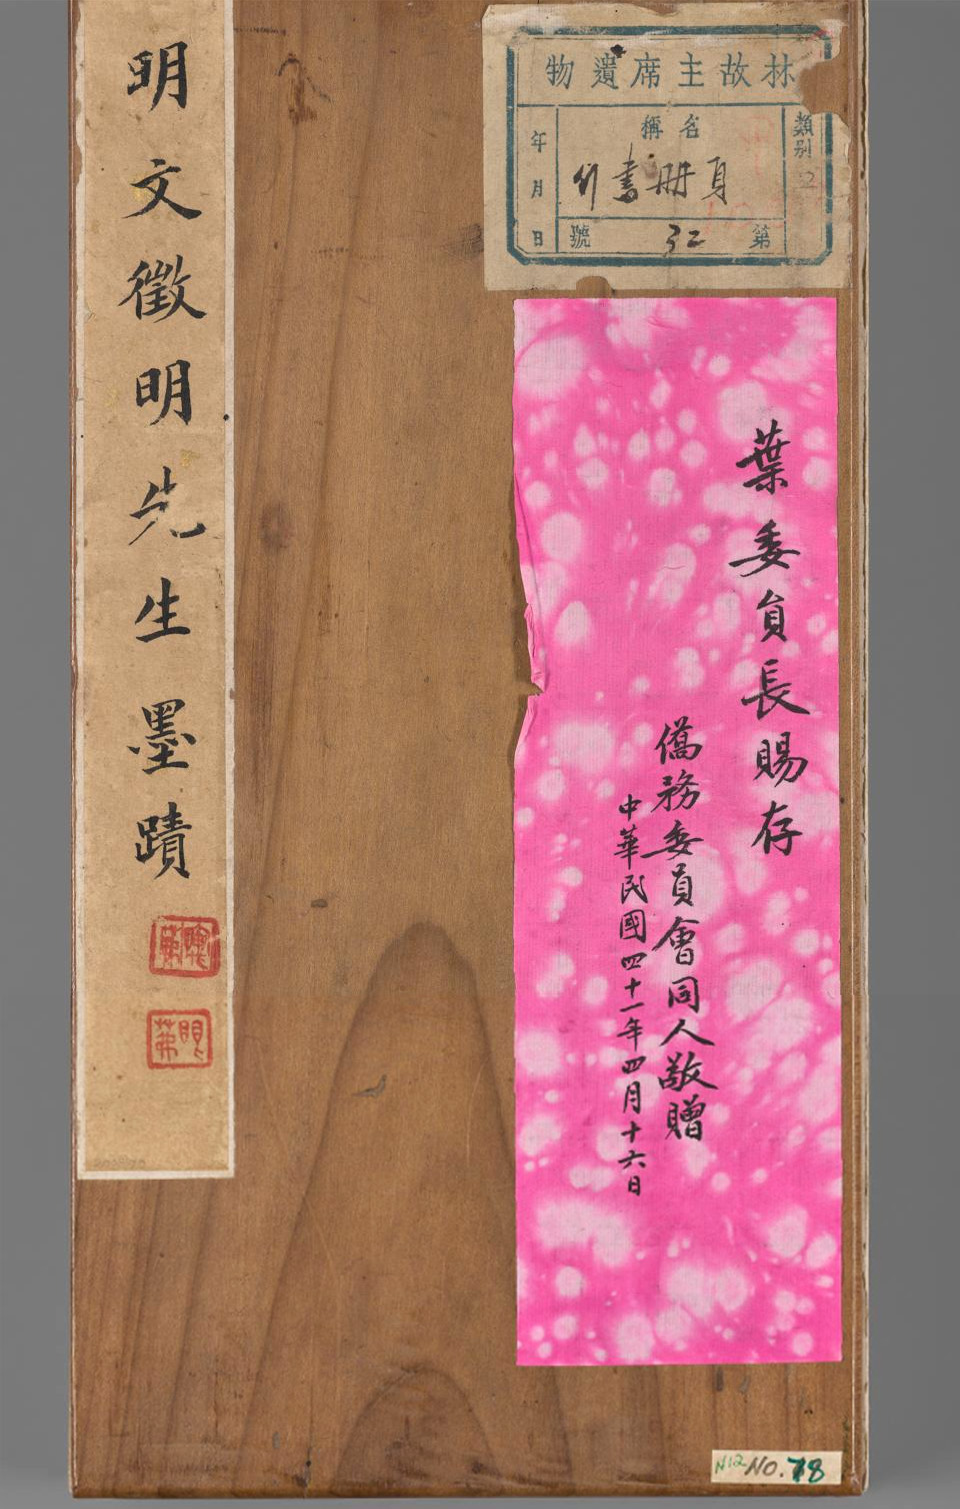 林故主席遺物
類別
名稱
行書冊頁
第32號
年月日
葉委員長賜存
僑務委員會同人敬贈
中華民國四十一年四月十六日
明文徵明先生墨蹟
N12 NO.78